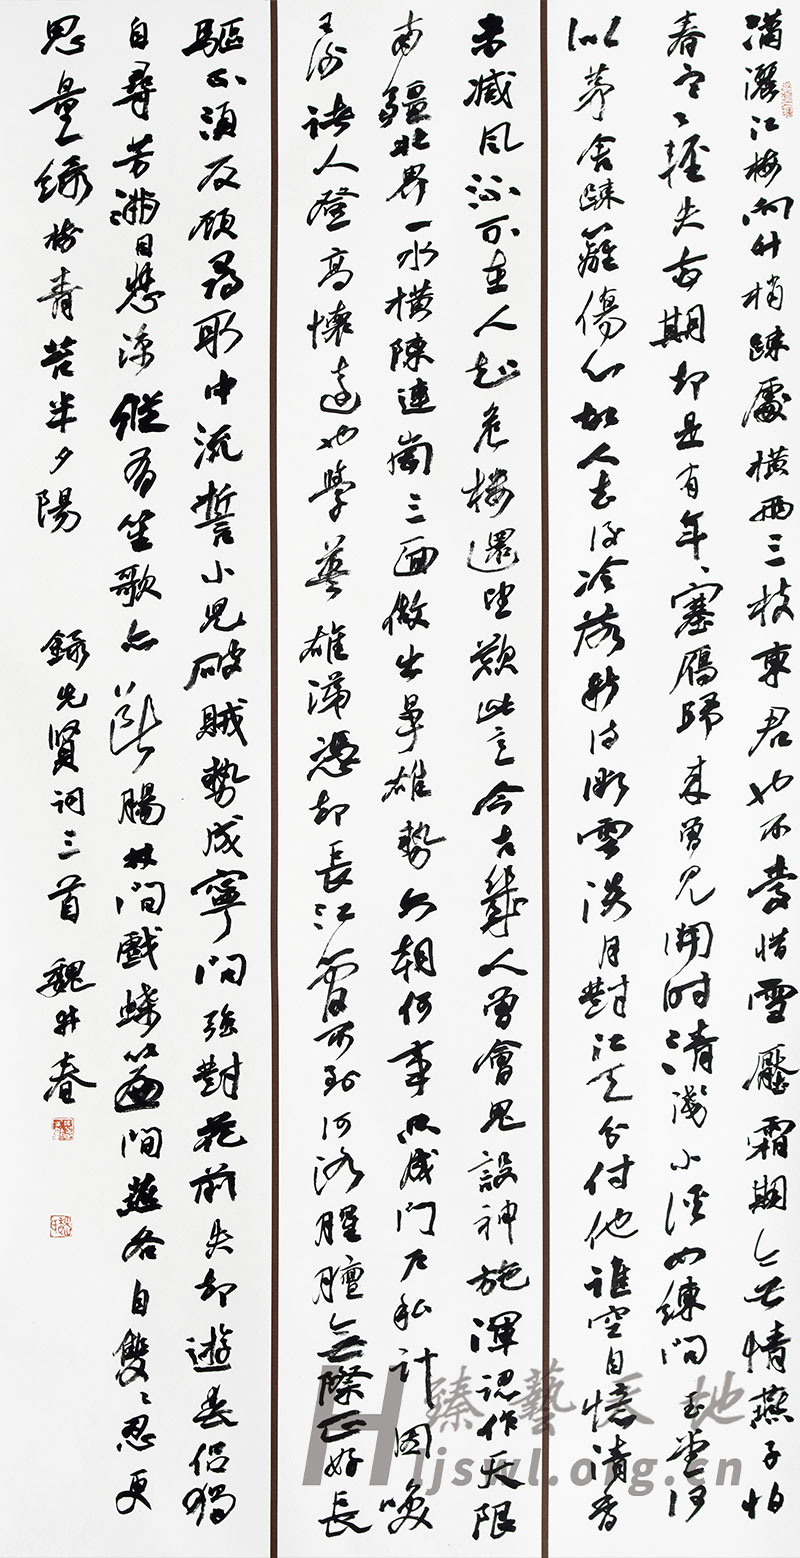 潇灑江梅向竹梢疎處橫兩三枝東君也不愛惜雪壓霜期無情燕子怕
春寒〻輕失花期却是有年〻塞鴈歸來曾見開時清淺小溪如練問玉堂何
似茅舍疎籬傷心故人去後冷落新詩微雲淡月對江天分付他誰空自憶清香
未減風流不在人知危樓還望歎此意今古幾人曾會鬼設神施渾認作天限
南疆北界一水橫陳連崗三面做出爭雄勢六朝何事只成門戶私計因笑
王謝諸人登高懷遠也學英雄涕憑却長江管不到河洛腥膻無際正好長
驅不須反顧尋取中流誓小兒破賊勢成寧問強對花前失却遊春侶獨
自尋芳滿目悲涼縱有笙歌亦斷腸林間戲蝶簾間燕各自雙〻忍更
思量綠樹青苔半夕陽 錄先賢詞三首 魏春
臻藝天地
Hljswl.org.cn